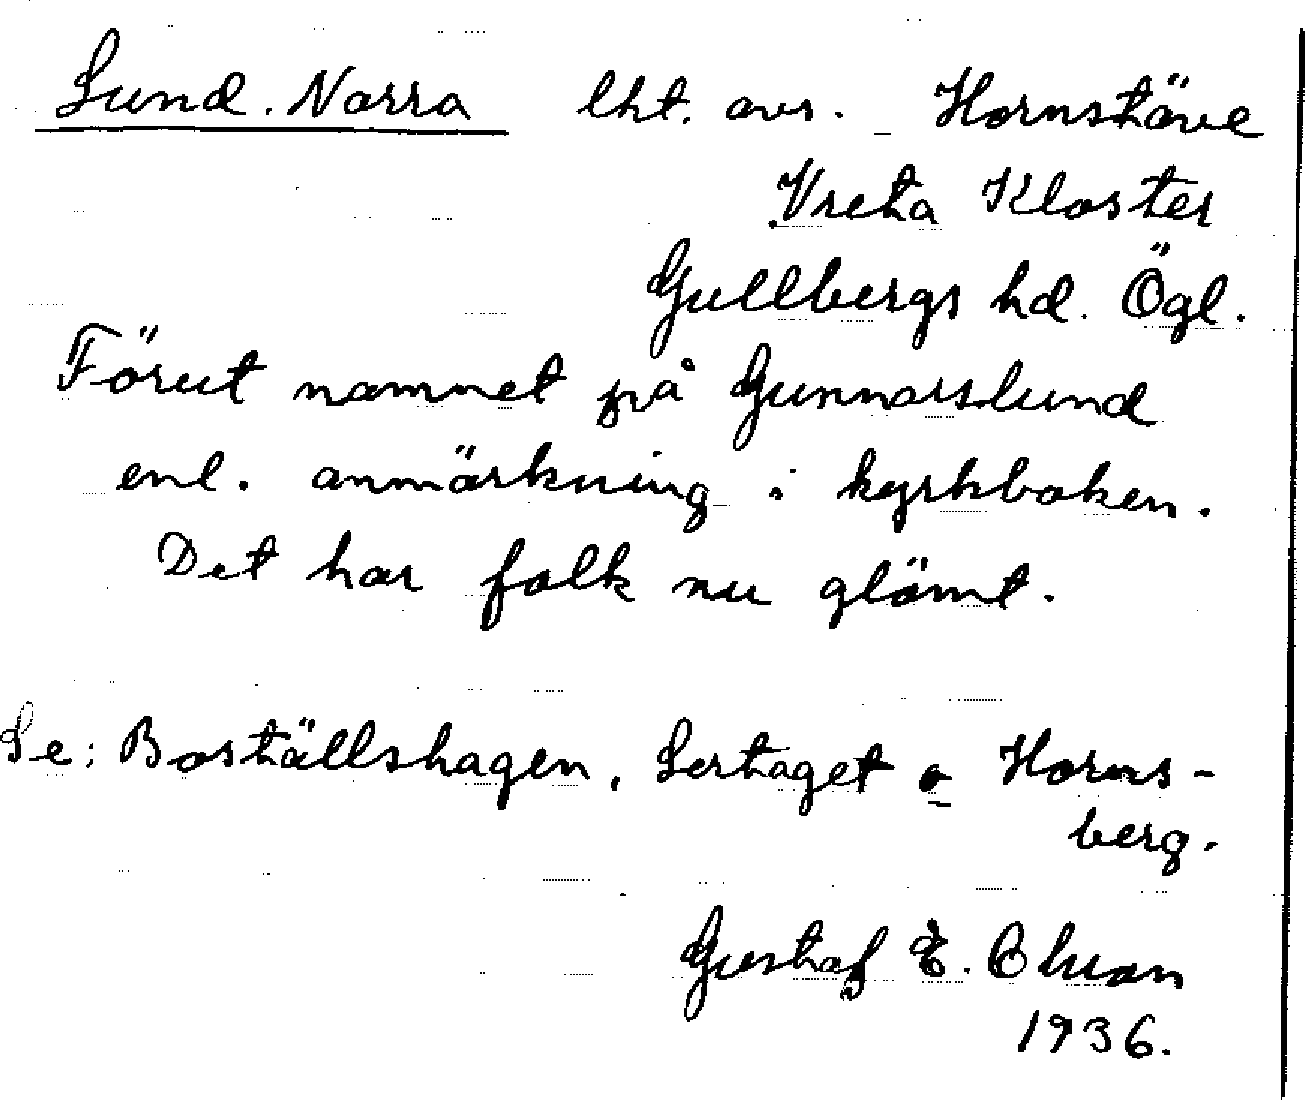 Lund. Norra lht. avs. Hornstäve
Vreta Kloster
Gullbergs hd. Ögl.
Förut namnet på Gunnarslund
enl. anmärkning i kyrkboken.
Det har folk nu glömt.
Se: Boställshagen, Lertaget o Horns-
berg.
Gustaf E.
1936.